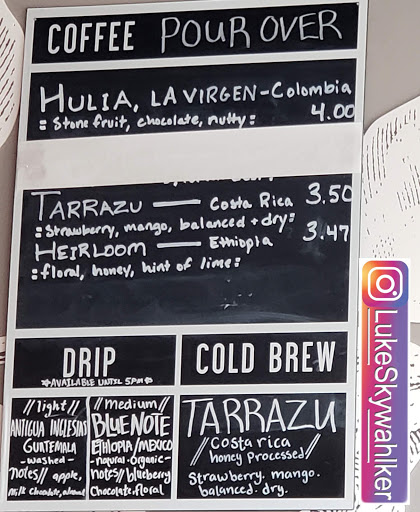 COFFEE POUR OVER
HULIA, LA VIRGEN - Colombia
: Stone fruit, chocolate, nutty : 4.00
TARRAZU — Costa Rica 3.50
: Strawberry, mango, balanced + dry :
HEIRLOOM — Ethiopia 3.47
: floral, honey, hint of lime :
DRIP
AVAILABLE UNTIL 5PM
//light//
ANTIGUA INGLESIAS
GUATEMALA
-washed-
notes// apple,
milk chocolate, almond
//medium//
BLUE NOTE
ETHIOPIA/MEXICO
-natural-organic-
notes// blueberry
chocolate, floral
COLD BREW
TARRAZU
//Costa rica
honey Processed//
Strawberry, mango.
balanced. dry.
LukeSkywahlker